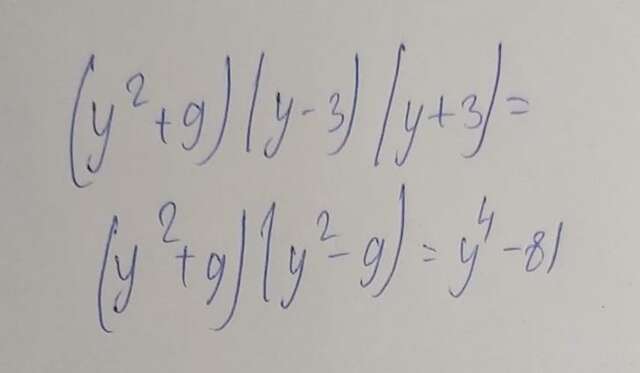 (y²+9)(y-3)(y+3)=
(y²+9)(y²-9)=y⁴-81